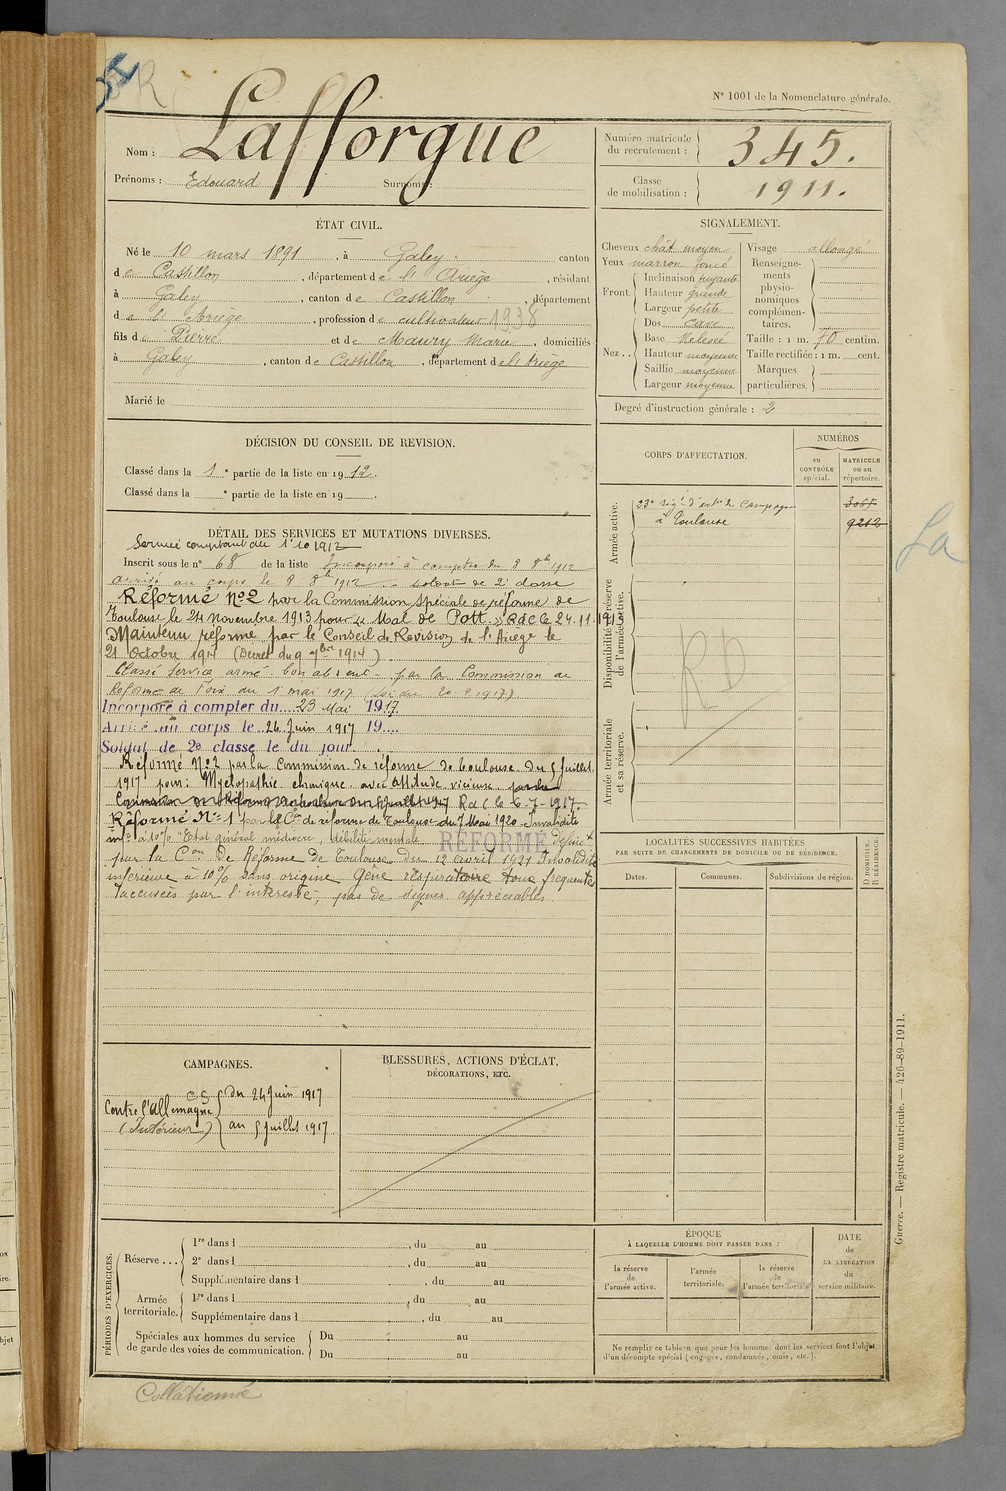 R
N° 1001 de la Nomenclature générale.
Nom : Lafforgue
Prénoms : Edouard Surnoms :
Numéro matricule du recrutement : 345.
Classe de mobilisation : 1911.
ÉTAT CIVIL.
Né le 10 mars 1891, à Galey canton
de Castillon, département de l'Ariège, résidant
à Galey, canton de Castillon, département
de l'Ariège, profession de cultivateur 1938
fils de Pierre et de Maury Marie, domiciliés
à Galey, canton de Castillon, département de l'Ariège
Marié le
SIGNALEMENT.
Cheveux chât moyen
Yeux marron foncé
Front. Inclinaison fuyante
Hauteur grande
Largeur petite
Nez .. Dos cave
Base relevée
Hauteur moyenne
Saillie moyenne
Largeur moyenne
Visage allongé
Renseignements physionomiques complémentaires.
Taille : 1 m. 70 centim.
Taille rectifiée : 1 m. cent.
Marques particulières.
Degré d'instruction générale : 2
DÉCISION DU CONSEIL DE REVISION.
Classé dans la 1e partie de la liste en 1912.
Classé dans la e partie de la liste en 19 .
CORPS D'AFFECTATION.
NUMÉROS
au CONTRÔLE spécial.
MATRICULE ou au répertoire.
Armée active.
23e Régt d'artie de Campagne
à Toulouse
9212
Disponibilité et réserve de l'armée active.
R D
Armée territoriale et sa réserve.
La
DÉTAIL DES SERVICES ET MUTATIONS DIVERSES.
Service comptant du 1er 10 1912
Inscrit sous le n° 68 de la liste Incorporé à compter du 8 8bre 1912
arrivé au corps le 8 8bre 1912 soldat de 2e classe
Réformé N°2 par la Commission spéciale de réforme de
Toulouse le 24 novembre 1913 pour « Mal de Pott. » RdC le 24.11.1913
Maintenu réformé par le Conseil de Revision de l'Ariège le
21 Octobre 1914 (Décret du 9 7bre 1914)
Classé service armé bon absent par la Commission de
Réforme de Foix du 1 mai 1917
Incorporé à compter du 23 Mai 1917
Arrivé au corps le 24 Juin 1917 19
Soldat de 2e classe le du jour.
Réformé N°2 par la Commission de réforme de Toulouse du 5 Juillet
1917 pour : Myélopathie chronique avec attitude vicieuse
RdC le 6-7-1917
Réformé N° 1 par la Con de réforme de Toulouse du 7 Mai 1920 Invalidité
infre à 10% "Etat général médiocre, débilité mentale RÉFORMÉ définit
par la Con De Réforme De Toulouse du 12 avril 1921 Invalidité
inférieure à 10% sans origine Gêne respiratoire toux fréquentes
accusées par l'intéressé, pas de signes appréciables.
LOCALITÉS SUCCESSIVES HABITÉES
PAR SUITE DE CHANGEMENTS DE DOMICILE OU DE RÉSIDENCE.
Dates.
Communes.
Subdivisions de région.
D DOMICILE. R RÉSIDENCE.
CAMPAGNES.
CS
Contre l'Allemagne
(Intérieur)
du 24 Juin 1917
au 5 Juillet 1917
BLESSURES, ACTIONS D'ÉCLAT,
DÉCORATIONS, ETC.
PÉRIODES D'EXERCICES.
Réserve ... 1re dans l , du au
2e dans l , du au
Supplémentaire dans l , du au
Armée territoriale. 1re dans l , du au
Supplémentaire dans l , du au
Spéciales aux hommes du service de garde des voies de communication. Du au
Du au
ÉPOQUE
À LAQUELLE L'HOMME DOIT PASSER DANS :
la réserve de l'armée active.
l'armée territoriale.
la réserve de l'armée territoriale.
DATE de LA LIBÉRATION du service militaire.
Ne remplir ce tableau que pour les hommes dont les services font l'objet
d'un décompte spécial (engagés, condamnés, omis, etc.).
Guerre. — Registre matricule. — 426-89-1911.
Collationné